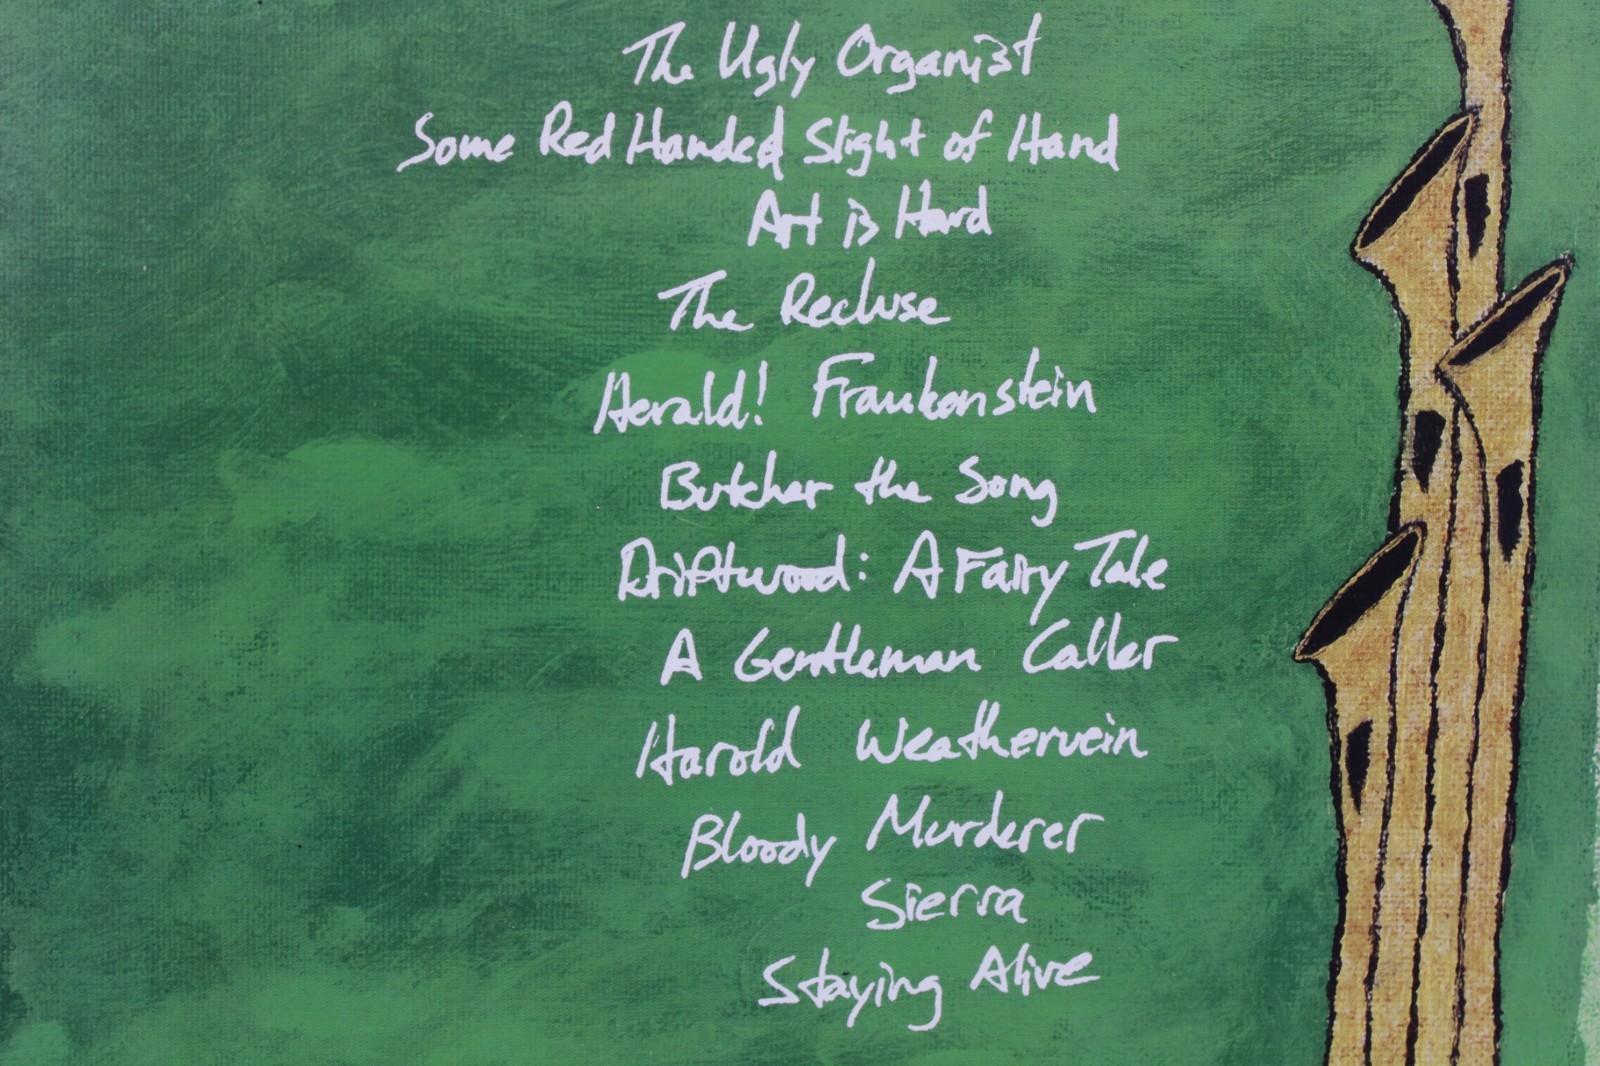 The Ugly Organist
Some Red Handed Slight of Hand
Art is Hard
The Recluse
Herald! Frankenstein
Butcher the Song
Driftwood: A Fairy Tale
A Gentleman Caller
Harold Weathervein
Bloody Murderer
Sierra
Staying Alive